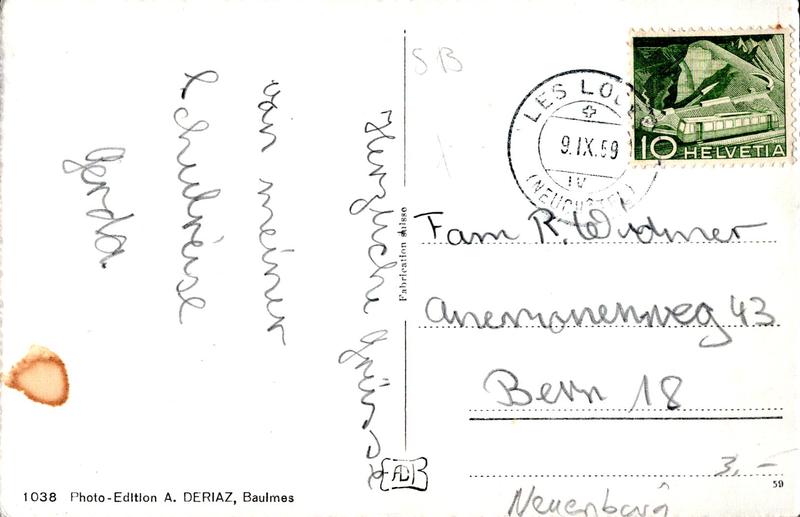 Herzliche Grüsse
von meiner
Schulreise
Gerda.
1038 Photo-Edition A. DERIAZ, Baulmes
Fabrication suisse
SB
9.IX.59
IV
(NEUCHÂTEL)
10 HELVETIA
Fam R. Widmer
Anemonenweg 43
Bern 18
3.-
59